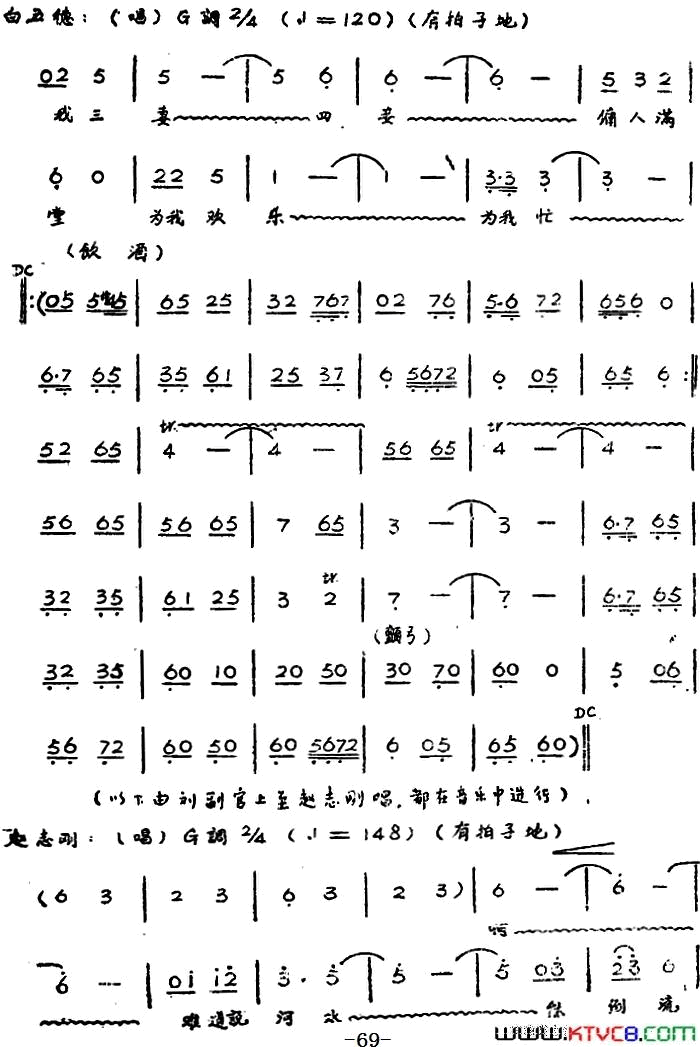 白五德:（唱）G調2/4（♩=120）（有拍子地）
02 5 | 5 — | 5 6 | 6 — | 6 — | 5 3 2 |
我三妻 四妾 傭人满
6 0 | 22 5 | 1 — | 1 — | 3·3 3 | 3 — |
堂 为我欢乐 为我忙
（飲酒）
DC
65 25 | 32 767 | 02 76 | 5·6 72 | 656 0 |
6·7 65 | 35 61 | 25 37 | 6 5672 | 6 05 | 65 6 :||
tr. tr
52 65 | 4 — | 4 — | 56 65 | 4 — | 4 — |
56 65 | 56 65 | 7 65 | 3 — | 3 — | 6·7 65 |
tr.
32 35 | 61 25 | 3 2 | 7 — | 7 — | 6·7 65 |
（顫弓）
32 35 | 60 10 | 20 50 | 30 70 | 60 0 | 5 06 |
DC
56 72 | 60 50 | 60 5672 | 6 05 | 65 60) ||
（以下由刘副官上至赵志刚唱，都在音乐中进行）.
赵志刚:（唱）G調2/4（♩=148）（有拍子地）
(6 3 | 2 3 | 6 3 | 2 3) | 6 — | 6 — |
6 -- | 01 12 | 3·5 | 5 — | 5 03 | 23 6
难道説河水 倒流
-69-
www.KTVC8.com